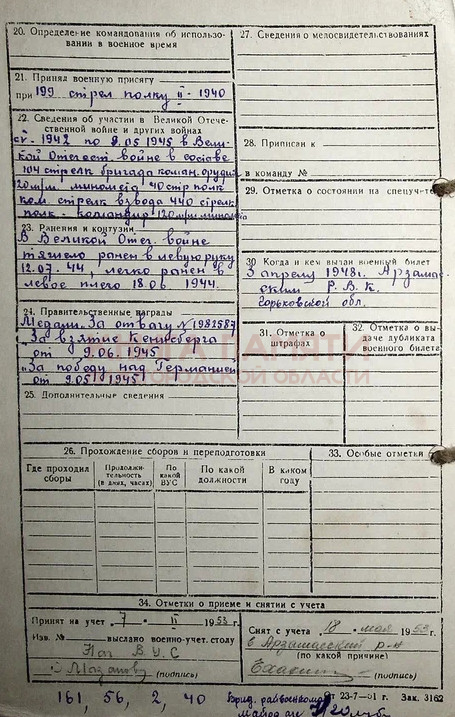 20. Определение командования об использо-
вании в военное время
21. Принял военную присягу
при 199 стрел полку II - 1940
22. Сведения об участии в Великой Отече-
ственной войне и других войнах
1942 по 9.05 1945 в Вели-
кой Отечест. войне в составе
104 стрелк бригада коман. орудия
миномета 40 стр полк
ком. стрелк взвода 440 стрелк
полк - командир 120 м/м миномета
23. Ранения и контузии
В Великой Отеч. войне
тяжело ранен в левую руку
12.07.44, легко ранен в
левое плечо 18.06 1944.
24. Правительственные награды
Медали За отвагу № 1982587
"За взятие Кенигсберга"
от 9.06.1945
"За победу над Германией
от 9.05.1945
25. Дополнительные сведения
27. Сведения о медосвидетельствованиях
28. Приписан к
в команду №
29. Отметка о состоянии на спецуч-те
30 Когда и кем выдан военный билет
3 апреля 1948г. Арзамас-
ским Р.В.К.
Горьковской обл.
31. Отметка о
штрафах
32. Отметка о вы-
даче дубликата
военного билета
КНИГА ПАМЯТИ
НИЖЕГОРОДСКОЙ ОБЛАСТИ
26. Прохождение сборов и переподготовки
Где проходил
сборы
Продолжи-
тельность
(в днях, часах)
По
какой
ВУС
По какой
должности
В каком
году
33. Особые отметки
34. Отметки о приеме и снятии с учета
Принят на учет 7 II 1953 г.
Изв. № выслано военно-учет. столу
Нач В.У.С
(подпись)
Снят с учета 18 мая 1953 г.
в Арзамасский р-н
(по какой причине)
(подпись)
161, 56, 2, 40
23-7-51 г. Зак. 3162